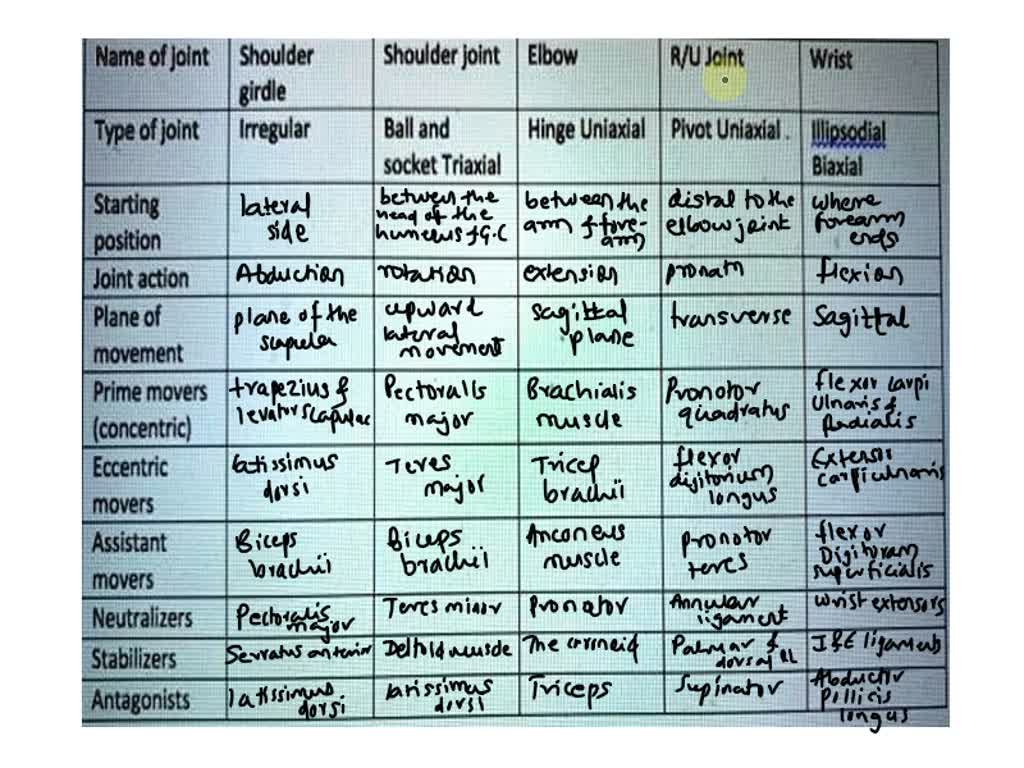 Name of joint Shoulder girdle Shoulder joint Elbow R/U Joint Wrist
Type of joint Irregular Ball and socket Triaxial Hinge Uniaxial Pivot Uniaxial . Illipsodial Biaxial
Starting position lateral side between the head of the humerus & G.C between the arm & fore-arm distal to the elbow joint where forearm ends
Joint action Abduction rotation extension pronatn flexion
Plane of movement plane of the scapula upward lateral movement sagittal plane transverse Sagittal
Prime movers (concentric) trapezius & levator scapulae Pectoralls major Brachialis muscle Pronotor quadratus flexor carpi Ulnaris & Radialis
Eccentric movers latissimus dorsi Teres major Tricep brachii flexor digitorium longus Extensor carpi ulnaris
Assistant movers Biceps brachii Biceps brachii Anconeus muscle pronotor teres flexor Digitoram superficialis
Neutralizers Pectoralis major Teres minor Pronator Annular ligament wrist extensors
Stabilizers Serratus anterior Deltoid muscle The coronoid Palmar & dorsal RL I&E ligaments
Antagonists latissimus dorsi latissimus dorsi Triceps Supinator Abductor pillicis longus